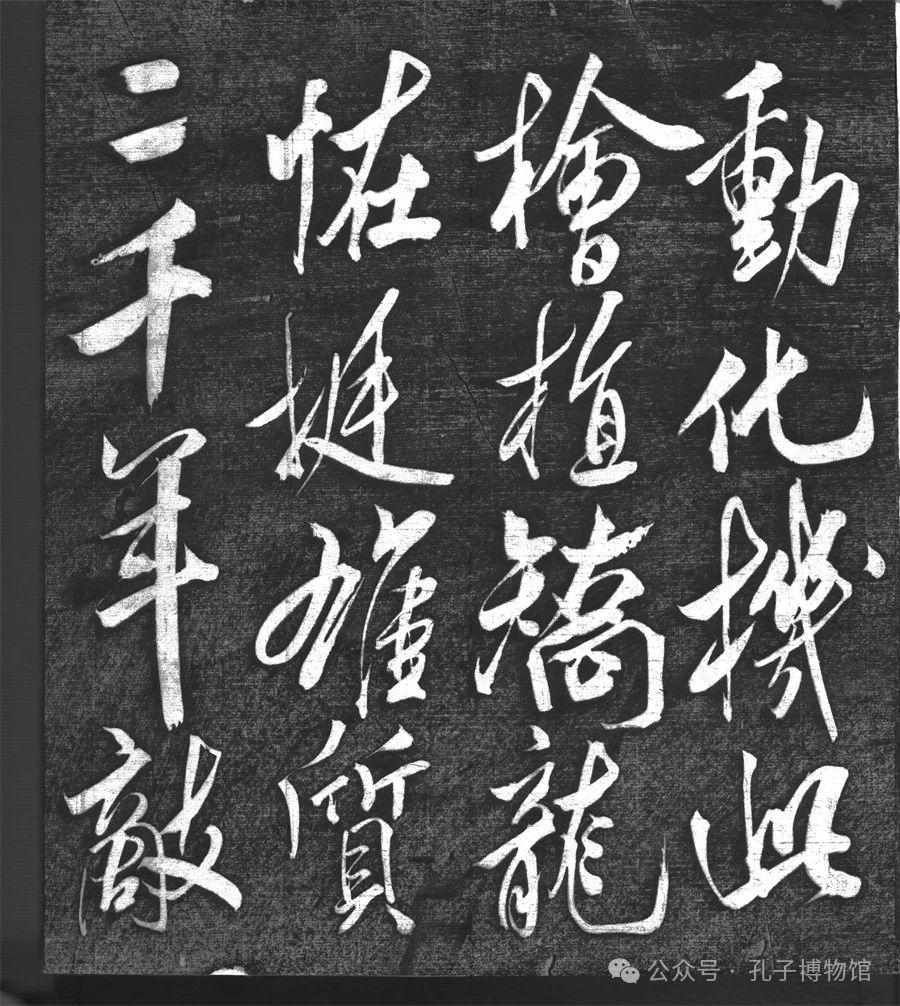 動化機此
檜植矯龍
恠挺雄質
二千年敵
公众号 · 孔子博物馆